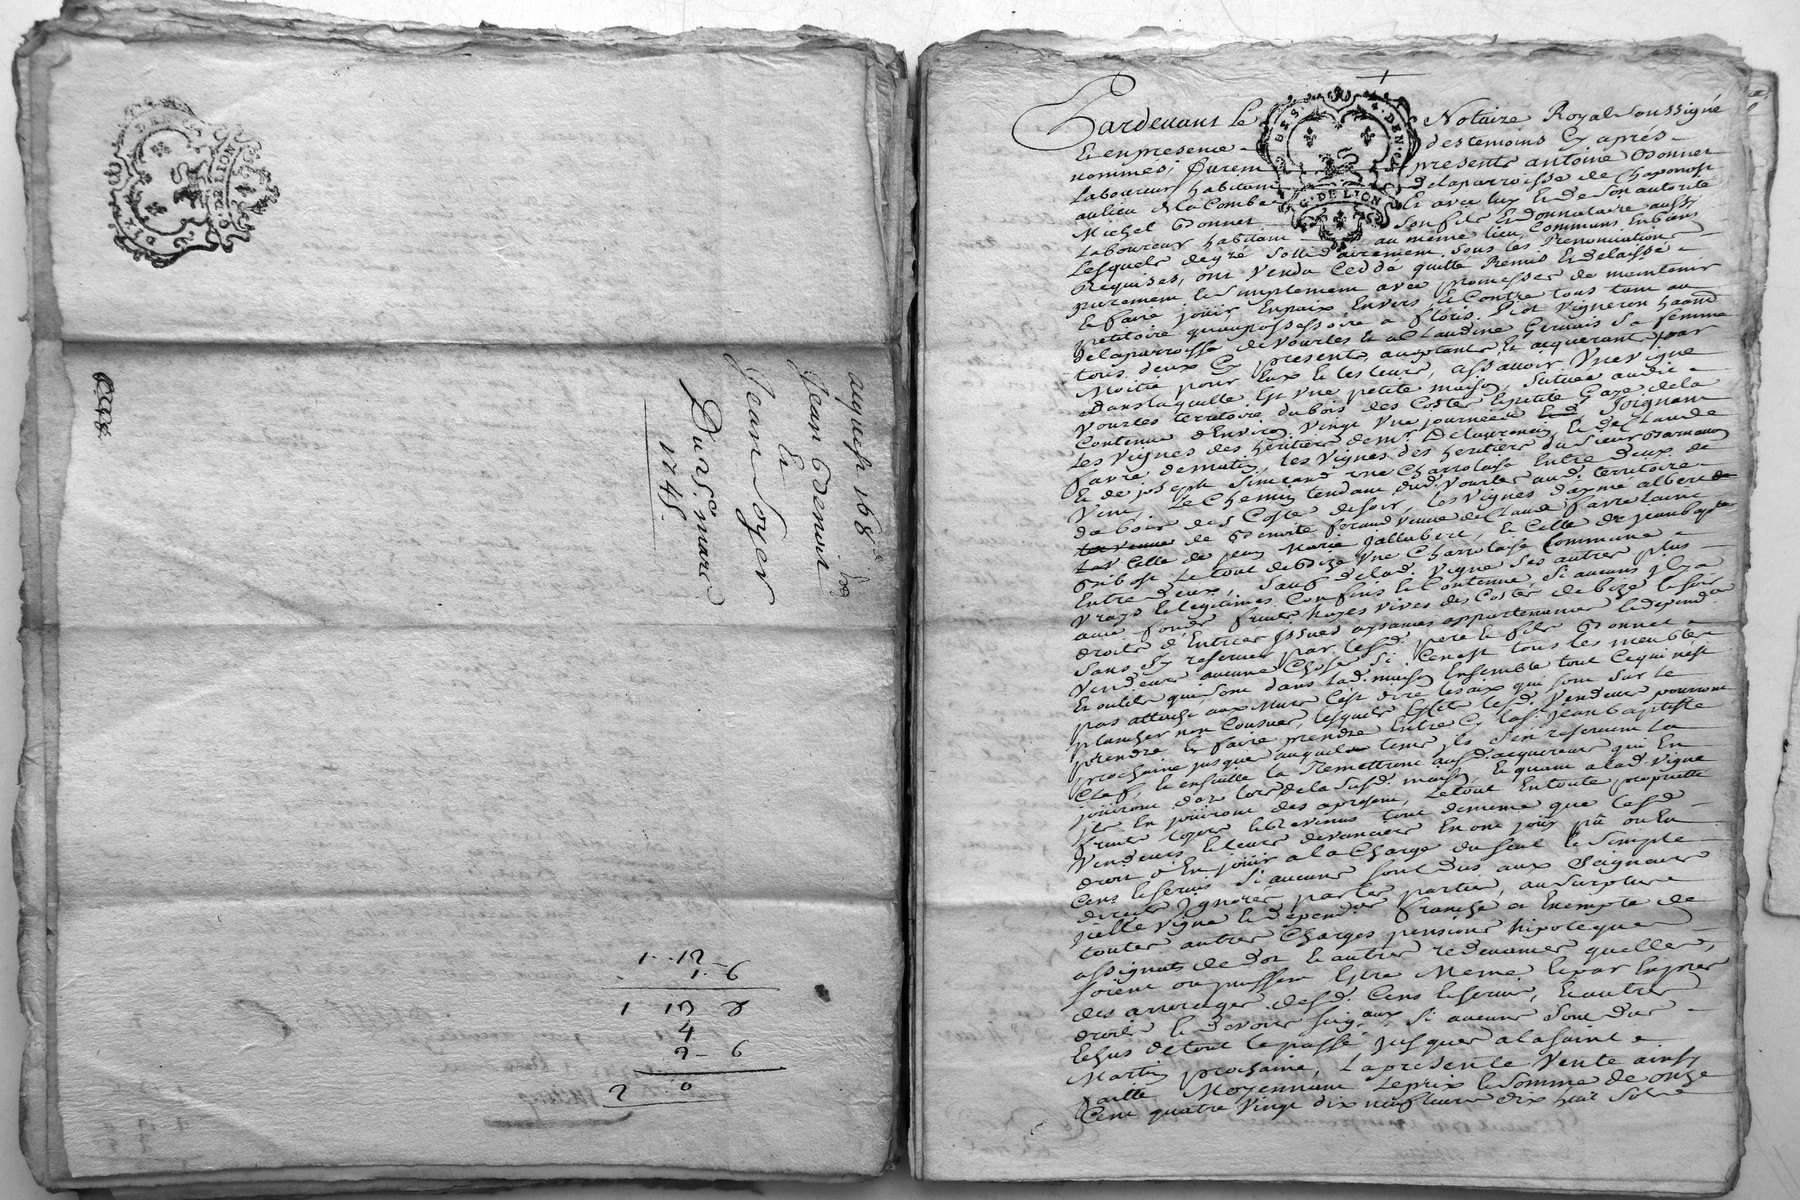 acquest 168
Jean Thevenin
Et
Jean Soyer
Du 25e mars
1745.
1 - 12 - 6
1 -
1 13 8
4
2 - 6
2 0
DE LION
Pardevant le Notaire Royal soussigné
Et en presence des temoins Cy apres
nommés, furent presents antoine Bonnet
Laboureur habitant delaparroisse de Chaponost
au lieu de la Combe Et avec luy Et de Son autorité
Michel Bonnet Son fils Et donnataire aussy
Laboureur habitant au même lieu, Communs En biens
Lesquels de gré Sollidairement Sous les Renonciations
Requises, ont Vendu Ceddé quitté Remis Et delaissé
purement Et Simplement avec promesses de maintenir
Et faire joüir En paix Envers Et Contre tous tant au
petitoire qu'au possessoire a Vigneron habitant
delaparroisse de Vourles Et a Claudine Gervais Sa femme
tous deux Cy presents, acceptants Et acquerants par
Moitié pour Eux Et les leurs, assavoir Une Vigne
Dans laquelle Est Une petite maison, Située audit
Vourles territoire du bois des Costes Et petite de la
Contenue d'Environ Vingt Une journées Joignant
Les Vignes des heritiers de Mr Et de Claude
favre de matin, les Vignes des heritiers du Sieur
Et de joseph Simeand Une Charriere Entre deux de
Vent, Le Chemin tendant dud. Vourles aud. territoire
du bois des Costes de soir, les Vignes d'aymé
de Benoite Veuve de Claude favre
Celle de jean Marie Jallabert, Et Celle de jean bapte
Le tout de bize Une Charriere Commune
Entre deux, Sauf de lad. Vigne Ses autres plus
Vrays Et legitimes Confins Et Contenue, Si aucuns Il y a
avec fonds fruits hayes vives des Costes de bize Et soir
droits d'Entrées Issues aysances appartenances Et dependces
Sans S'y reserver par lesd. pere Et fils Bonnet
Vendeurs aucune Chose Si Ce n'est tous les meubles
Et outils qui sont dans lad. maison Ensemble tout Ce qui n'est
pas attaché aux Murs C'est a dire les aix qui sont Sur le
plancher non Cousues, lesquels Effets lesd. Vendeurs pourront
prendre Et faire prendre Entre Cy Et la St. Jean baptiste
prochaine jusque auquel tems Ils S'en reservent La
Clef, Et ensuitte la Remettront ausd. acquereurs qui En
joüiront des lors de la Susd. maison, Et quant a lad. Vigne
Ils En joüiront des a present, Le tout En toute proprieté
fruits loyers Et revenus tout de meme que lesd.
Vendeurs Et leurs devanciers En ont joüis pû ou Eu
droit d'En joüir a la Charge du Seul Et Simple
Cens Et Servis Si aucuns Sont dus aux Seigneurs
directs Ignorés par les parties, au Surplus
jcelle Vigne Et dependces franche Et Exempte de
toutes autres Charges pensions hipoteques
assignats de dot Et autres redevances quelles
soient ou puissent Estre Meme Et par Exprès
des arrerages desd. Cens Et Servis, Et autres
droits Et devoirs Seigaux, Si aucuns Sont dus
Echus de tout le passé jusques a la Saint
Martin prochaine, La presente Vente ainsy
faitte Moyennant Le prix Et Somme de onze
Cent quatre Vingt dix neuf livres dix huit Sols